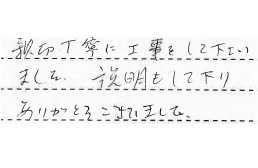 親切丁寧に工事をして下さい
ました。説明もして下り
ありがとうございました。